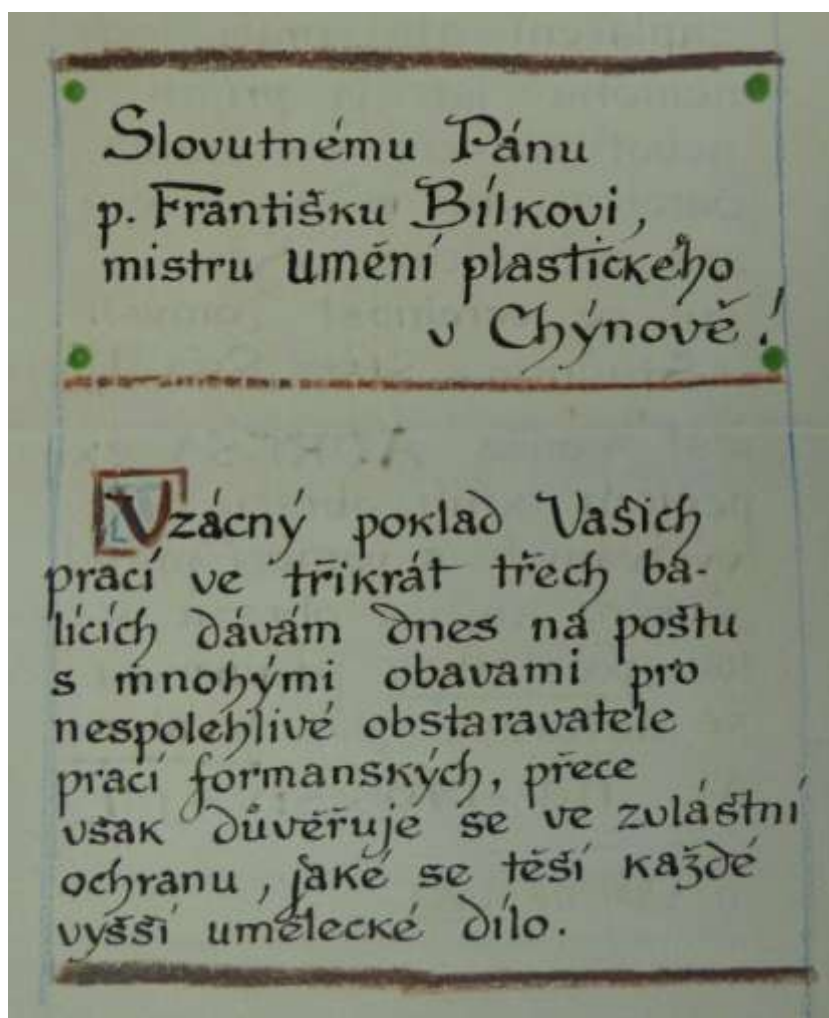 Slovutnému Pánu
p. Františku Bílkovi,
mistru umění plastického
v Chýnově!
Vzácný poklad Vašich
prací ve třikrát třech ba-
lících dávám dnes na poštu
s mnohými obavami pro
nespolehlivé obstaravatele
prací formanských, přece
však důvěřuje se ve zvláštní
ochranu, jaké se těší každé
vyšší umělecké dílo.